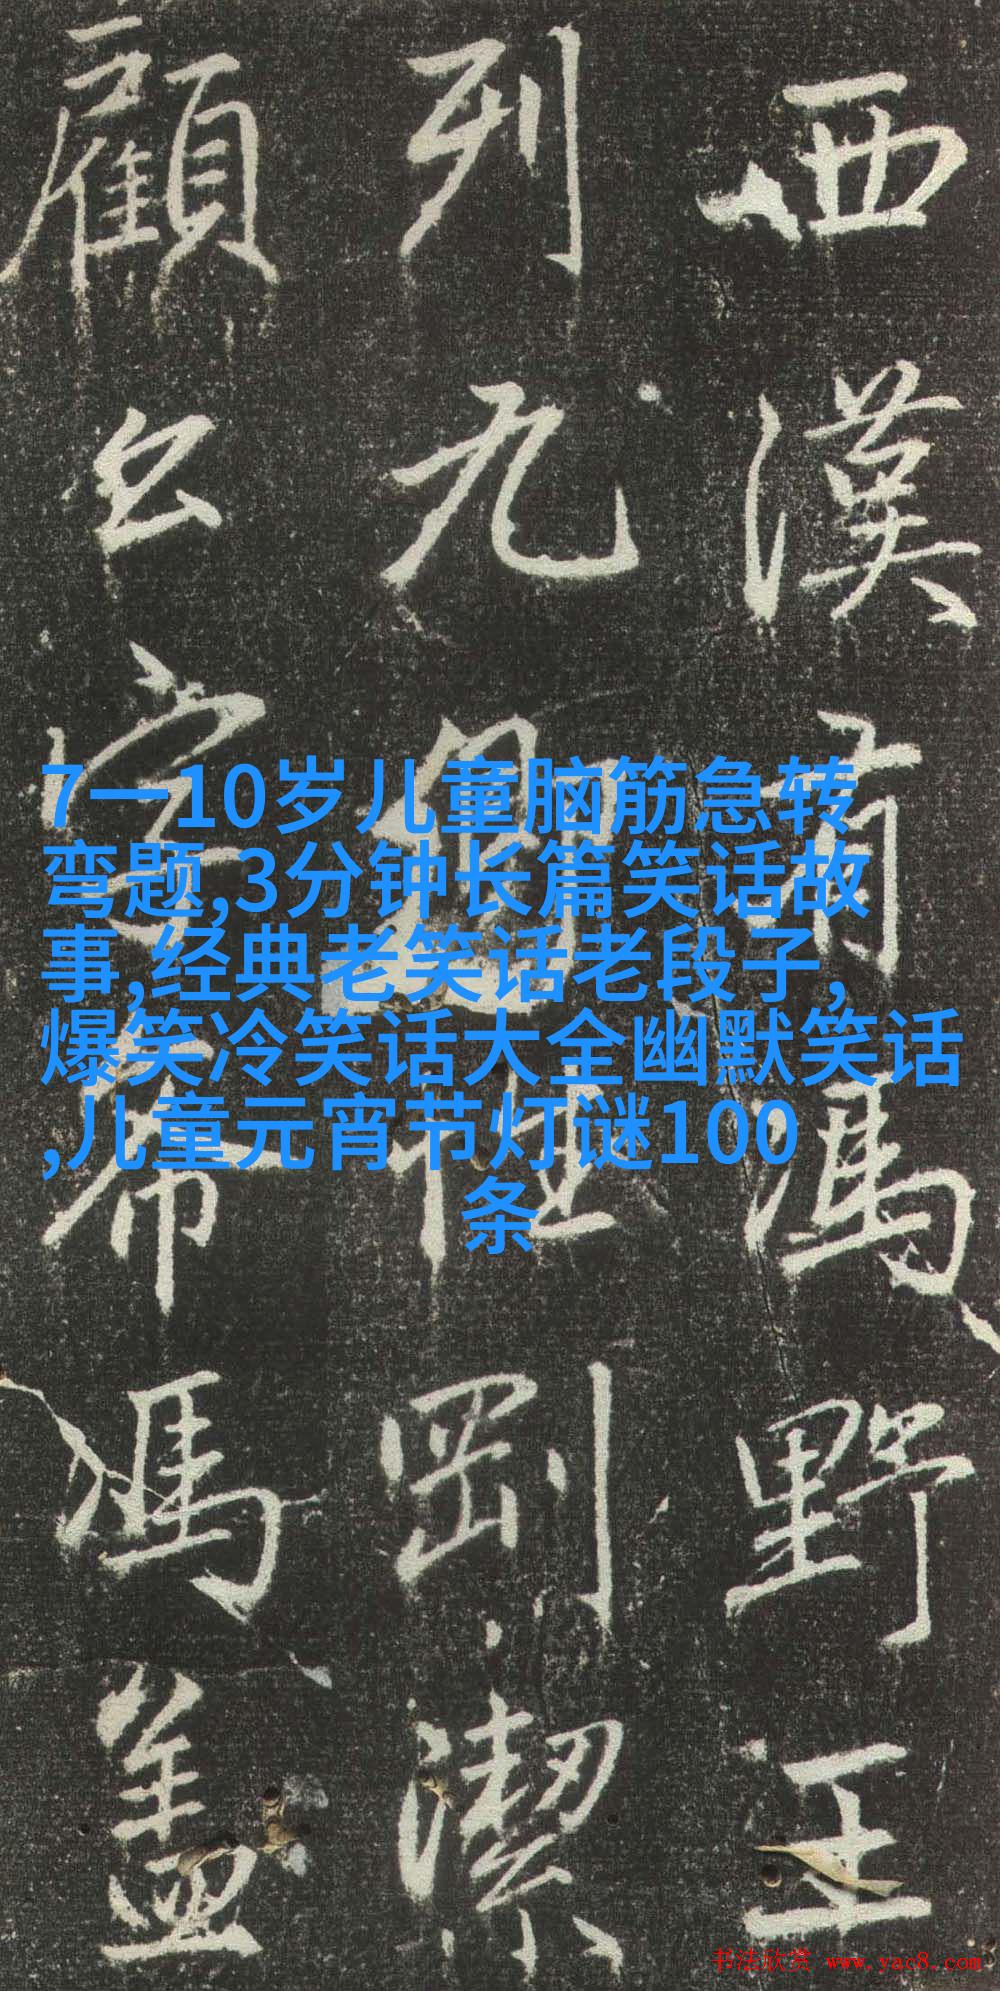 西漢有馮野王
列九 性剛潔
顧公字希馮蓋
7一10岁儿童脑筋急转
弯题,3分钟长篇笑话故
事,经典老笑话老段子,
爆笑冷笑话大全幽默笑话
,儿童元宵节灯谜100
条
书法欣赏 www.yac8.com